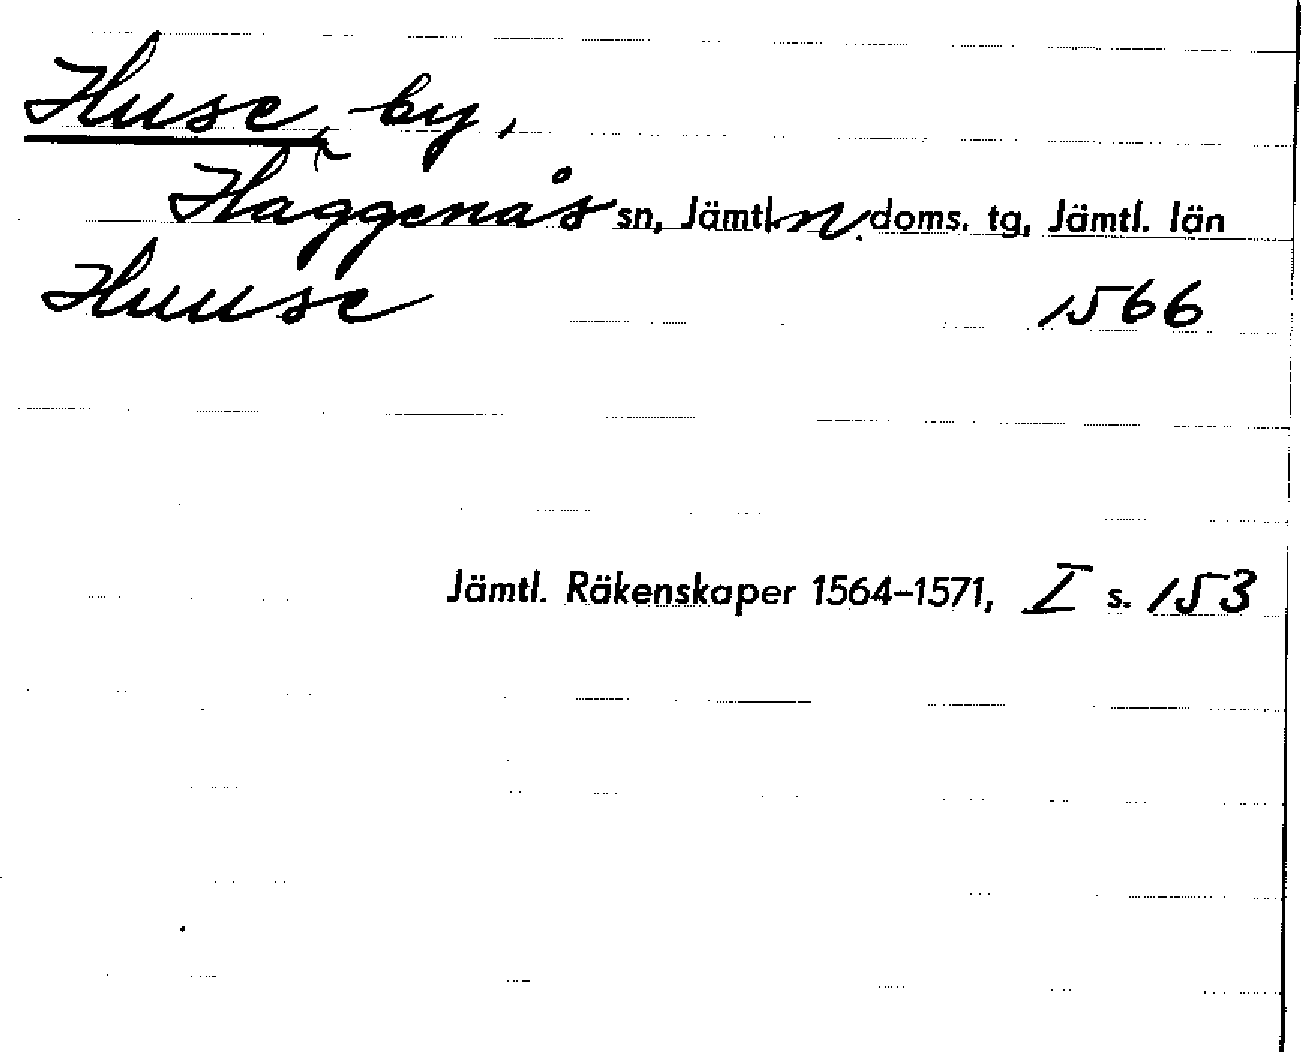 Huse, by,
Häggenås sn, Jämtl. n. doms. tg, Jämtl. län
Huuse 1566
Jämtl. Räkenskaper 1564–1571, I s. 153